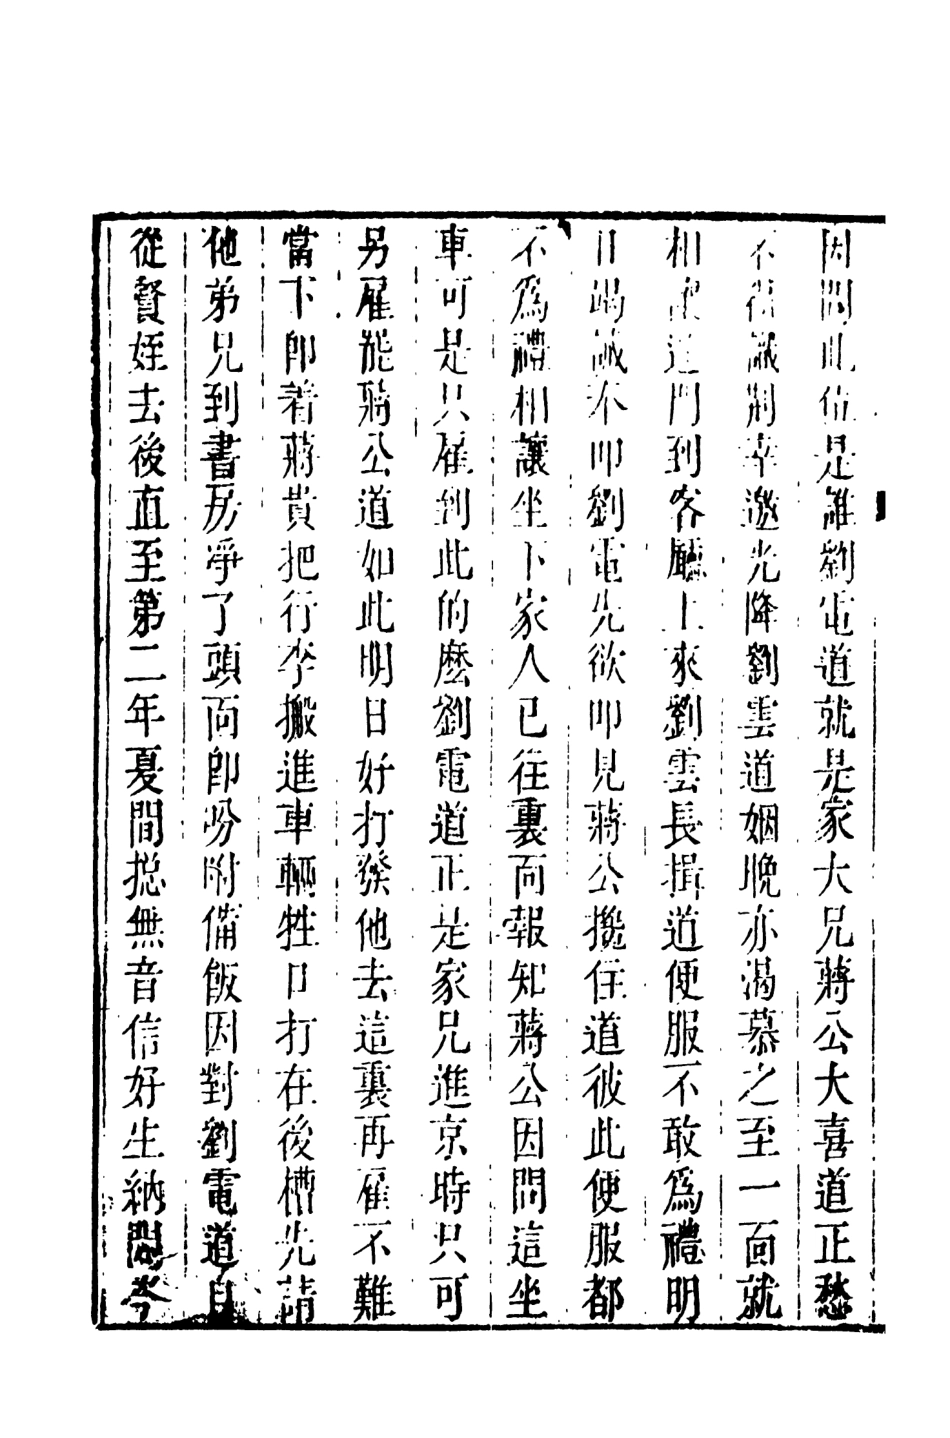 因問此位是誰劉電道就是家大兄蔣公大喜道正愁
不得識荊幸邀光降劉雲道姻晚亦渴慕之至一面就
相讓進門到客廳上來劉雲長揖道便服不敢爲禮明
日竭誠不叩劉電先欲叩見蔣公攙住道彼此便服都
不爲禮相讓坐下家人已往裏面報知蔣公因問這坐
車可是只雇到此的麽劉電道正是家兄進京時只可
另雇能蔣公道如此明日好打發他去這裏再雇不難
當下卽着蔣貴把行李搬進車輛牲口打在後槽先請
他弟兄到書房凈了頭面卽吩咐備飯因對劉電道自
從賢姪去後直至第二年夏間搃無音信好生納悶岑